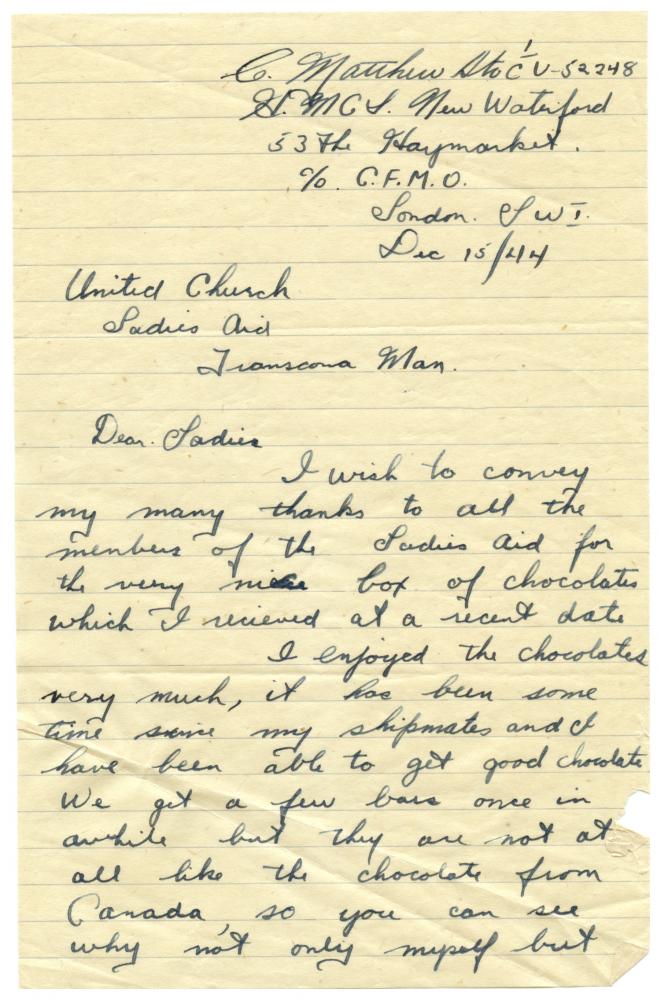 C. Matthew Sto 1/C V-52248
H.M.C.S. New Waterford
53 The Haymarket.
c/o C.F.M.O.
London. S W 1.
Dec 15/44
United Church
Ladies Aid
Transcona Man.
Dear Ladies
I wish to convey
my many thanks to all the
members of the Ladies Aid for
the very nice box of chocolates
which I recieved at a recent date
I enjoyed the chocolates
very much, it has been some
time since my shipmates and I
have been able to get good chocolate
We get a few bars once in
awhile but they are not at
all like the chocolate from
Canada, so you can see
why not only myself but